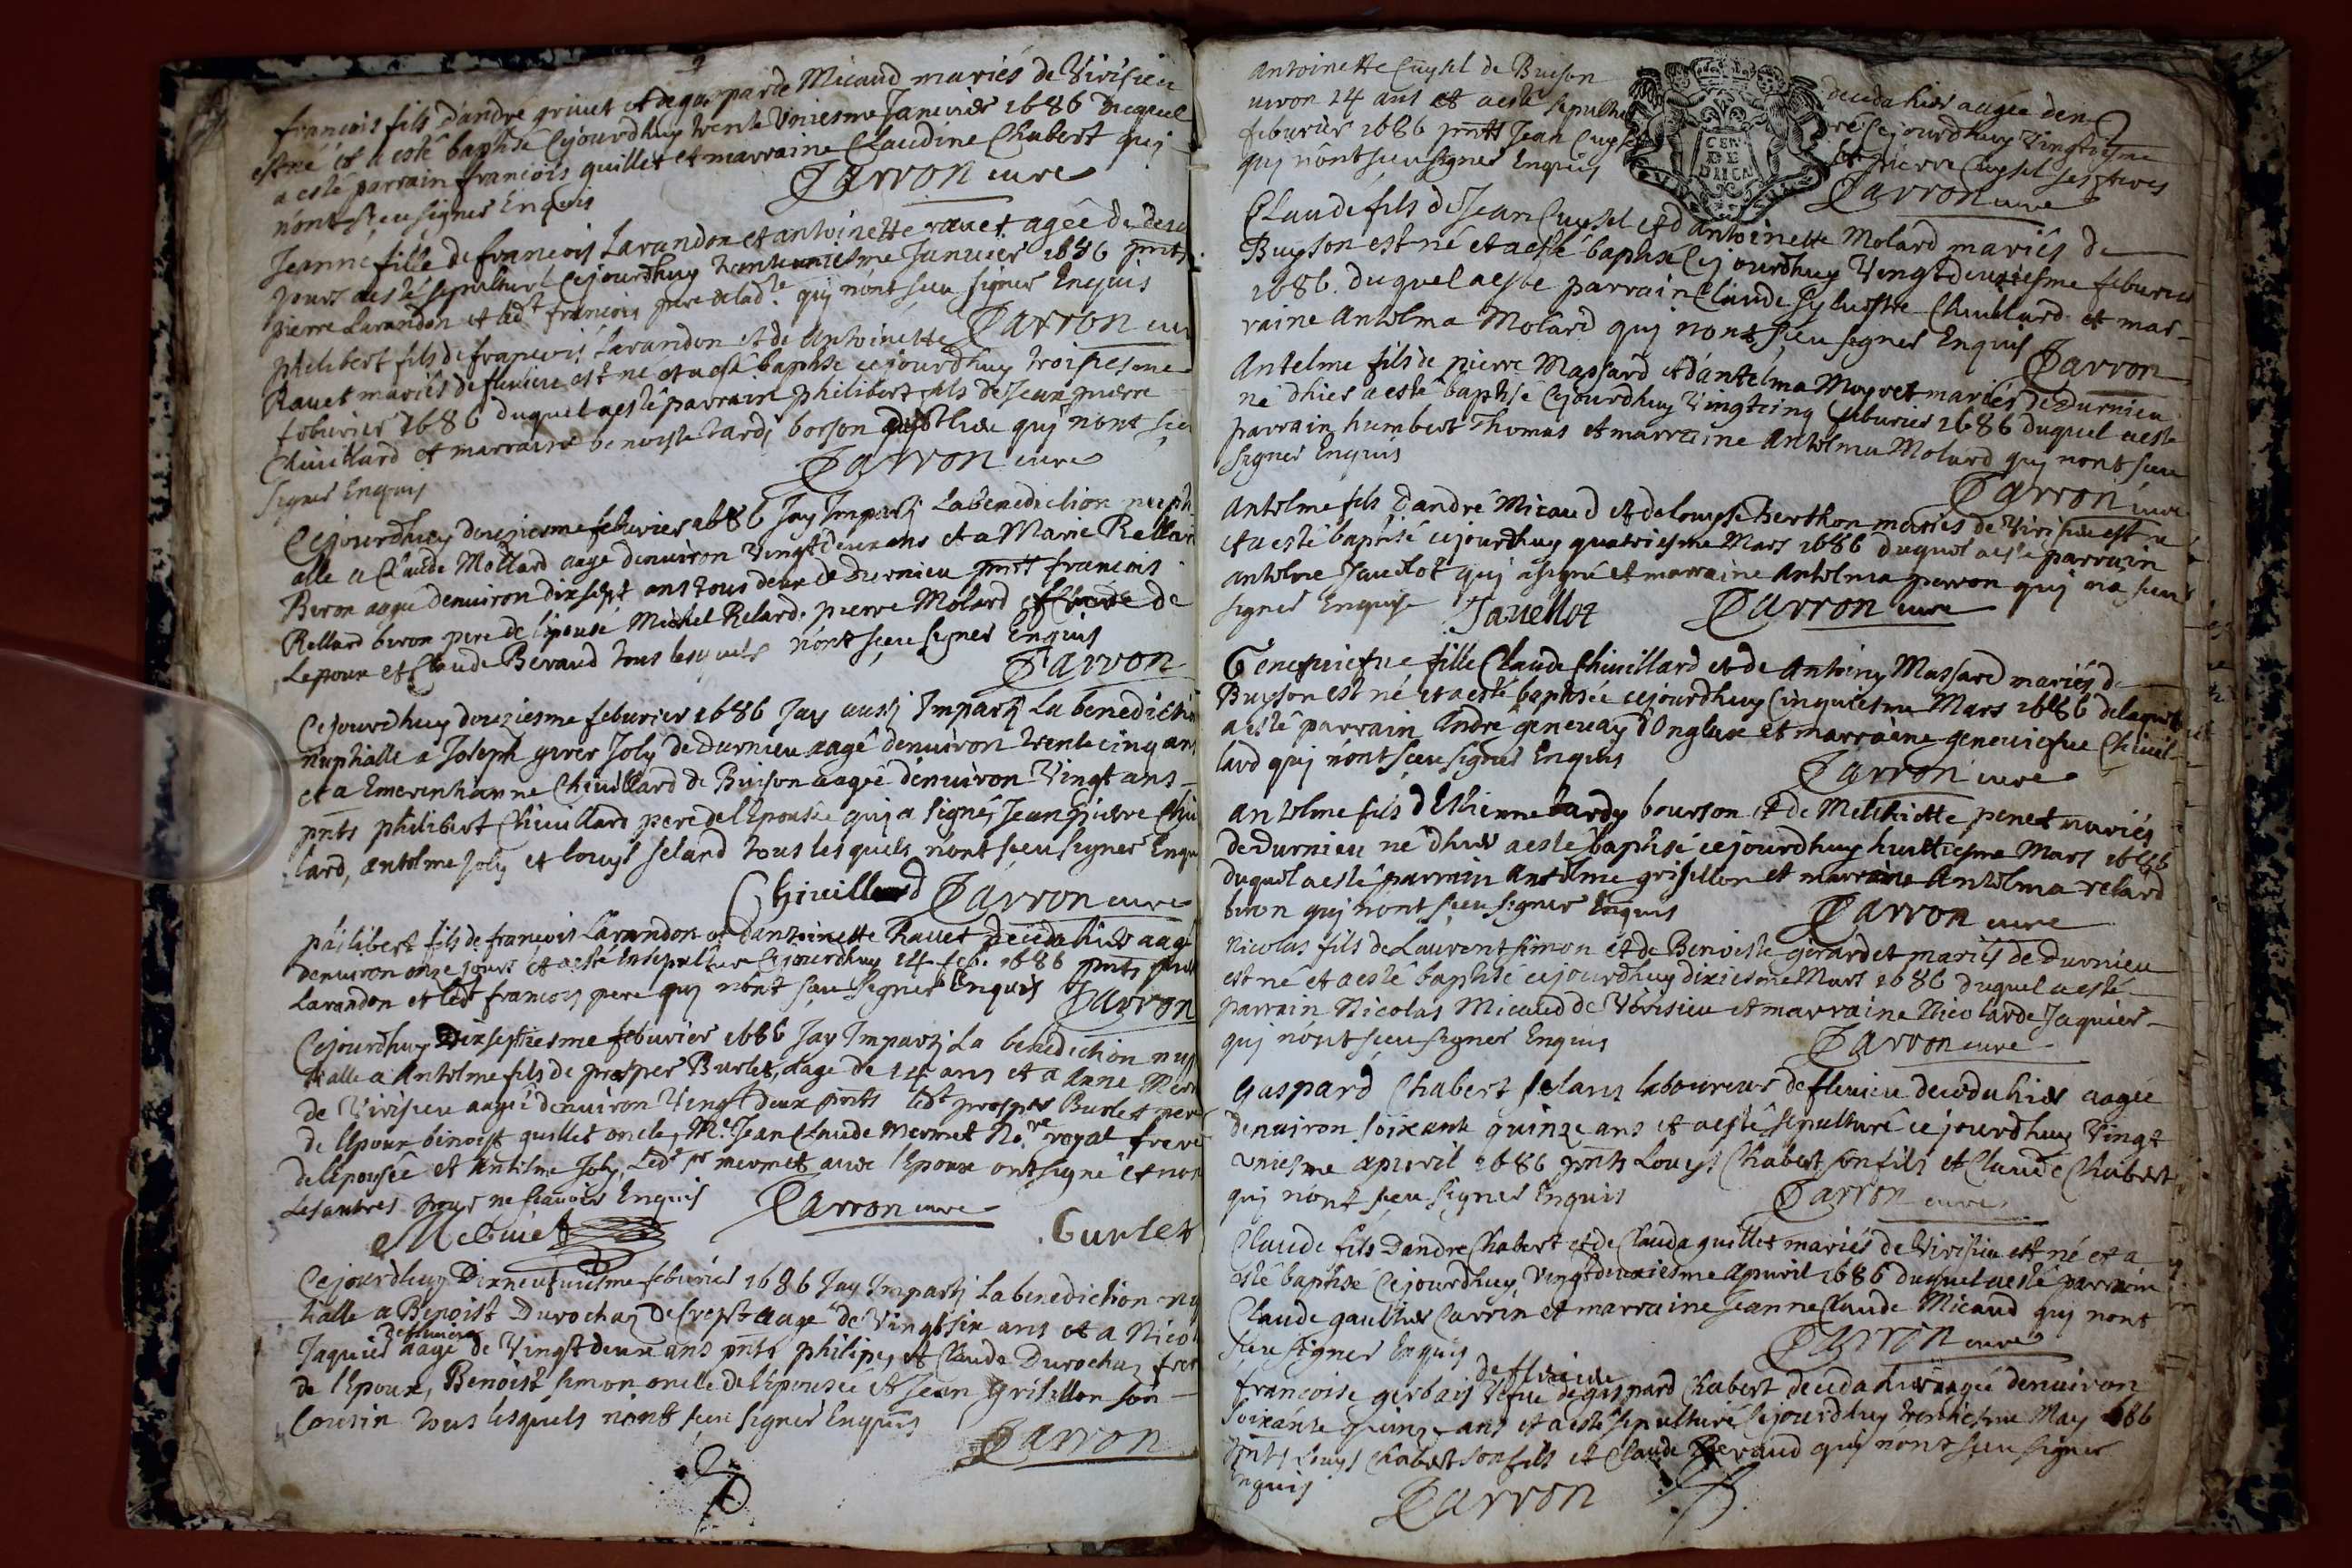 françois fils d'andré grinet et de gasparde Micaud mariés de Virisieu
est né et a esté baptisé Cejourdhuy trente Uniesme Januier 1686 duquel
a esté parrain françois quillet et marraine Claudine Chabert quj
n'ont sceu signer Enquis Jarron cure
Jeanne fille de françois Larandon et antoinette rauet agée de deux
jours aesté sepulturé Cejourdhuy trente uniesme Januier 1686 pnts
pierre Larandon et led.t françois pere de lad.te quj nont sceu signer Enquis
Jarron cure
philibert fils de françois Larandon et de Antoinette
Rauet mariés de fluieu est né et aesté baptisé cejourdhuy troisiesme
feburier 1686 duquel aesté parrain philibert fils de Jean pierre
Chiuillard et marraine benoiste tardj borson quj nont sceu
signer Enquis Jarron cure
Cejourdhuy douziesme feburier 1686 Jay Impartj La benediction nupti
alle a Claude Mollard aagé denuiron Vingt deux ans et a Marie Rellard
Beron aagée denuiron dix sept ans tous deux de Durnieu pnts françois
Rellard beron pere de l'epouse Michel Relard, pierre Molard frere de
Lepoux et Claude Beraud tous lesquels n'ont sceu signer Enquis
Jarron
Cejourdhuy douziesme feburier 1686 Jay aussj Impartj La benedictio
nuptialle a Joseph giver Joly de Durnieu aagé denuiron trente cinq ans
et a Emerentianne Chiuillard de Buison aagée denuiron Vingt ans
pnts philibert Chiuillard pere de l'Epousée quj a signé, Jean pierre Chiu
lard, antelme Joly et louys seland tous lesquels nont sceu signer Enqu
Chiuillard Jarron cure
philibert fils de françois Larandon et dantoinette Rauet decedá hier aagé
denuiron onze jours et aesté Ensepulturé Cejourdhuy 14 feb. 1686 pnts
Larandon et led.t françois pere quj nont sceu signer Enquis Jarron
Cejourdhuy Dixseptiesme feburier 1686 Jay Impartj La benediction nup
tialle a Antelme fils de prosper Burlet, aagé de 24 ans et a anne Mer
de Virisieu aagée denuiron Vingt deux pnts led.t prosper Burlet pere
de l'Epoux benoist quillet oncle, M.e Jean Claude mermet No.re royal frere
de l'Epousée et Antelme Joly, Led.t s.r mermet auec l'Epoux ont signé et non
Les autres pour ne sçauoir Enquis Jarron cure
Mermet Burlet
Cejourdhuy Dixneufuiesme feburier 1686 Jay Impartj La benediction nup
tialle a Benoist Durochaz de Creyst aagé de Vingt six ans et a Nico
de fluieu
Jaquier aagé de Vingt deux ans pnts philipe, et Claude Durochaz frer
de l'Epoux, Benoist simon oncle de l'Epousée et Jean grisellon son
Cousin tous lesquels n'ont sceu signer Enquis
Jarron
Antoinette Cuysel de Buison decedá hier aagée den
uiron 24 ans et aesté sepulturé Cejourdhuy Vingtiesme
feburier 1686 pnts Jean Cuysel et pierre Cuysel ses freres
quj n'ont sceu signer Enquis Jarron cure
GEN
DE
DUCA
Claude fils de Jean Cuysel et d'Antoinette Molard mariés de
Buyson est né et aesté baptisé Cejourdhuy Vingtdeuxiesme feburier
1686. duquel aesté parrain Claude syluestre Chiuillard et mar-
raine Antelma Molard quj nont sceu signer Enquis Jarron
Antelme fils de pierre Massard et d'antelma Moyret mariés de Durnieu
né dhier aesté baptisé Cejourdhuy Vingtcinq feburier 1686 duquel aesté
parrain humbert Thomas et marraine Antelma Molard quj nont sceu
signer Enquis Jarron cure
Antelme fils dandré Micaud et de louyse Berthon mariés de Virisieu est né
et aesté baptisé cejourdhuy quatriesme Mars 1686 duquel aesté parrain
Antelme Jauellot quj a signé et marraine Antelma perron quj na sceu
signer Enquise Jauellot Jarron cure
Geneuiefue fille Claude Chiuillard et de Antoiny Massard mariés de
Buyson est né et aesté baptisée cejourdhuy Cinquiesme Mars 1686 delaquelle
a esté parrain André geneuay d'Onglax et marraine geneuiefue Chiuil-
lard quj n'ont sceu signer Enquis Jarron cure
Antelme fils d'Estienne tardy bourson et de Melchiotte penet mariés
de Durnieu né dhier aesté baptisé cejourdhuy huittiesme Mars 1686
duquel aesté parrain Antelme grisellon et marraine Antelma relard
beron quj nont sceu signer Enquis Jarron cure
Nicolas fils de Laurent simon et de Benoiste girardet mariés de Durnieu
est né et aesté baptisé cejourdhuy dixiesme Mars 1686 duquel aesté
parrain Nicolas Micaud de Virisieu et marraine Nicolarde Jaquier
quj n'ont sceu signer Enquis Jarron cure
Gaspard Chabert selans laboureur de fluieu decedá hier aagée
denuiron soixante quinze ans et aesté sepulturé cejourdhuy Vingt
Uniesme apuril 1686 pnts Louys Chabert son fils et Claude Chabert
quj n'ont sceu signer Enquis Jarron cure
Claude fils Dandré Chabert et de Clauda quillet mariés de Virisieu est né et a
esté baptisé Cejourdhuy Vingtdeuxiesme Apuril 1686 duquel aesté parrain
Claude gaultier Carrin, et marraine Jeanne Claude Micaud quj nont
sceu signer Enquis Jarron curé
de fluieu
françoise gerbais Vefue de gaspard Chabert decedá hier aagée denuiron
soixante quinze ans et aesté sepulturé Cejourdhuy trentiesme May 1686
pnts Louys Chabert son fils et Claude Beraud quj n'ont sceu signer
Enquis Jarron